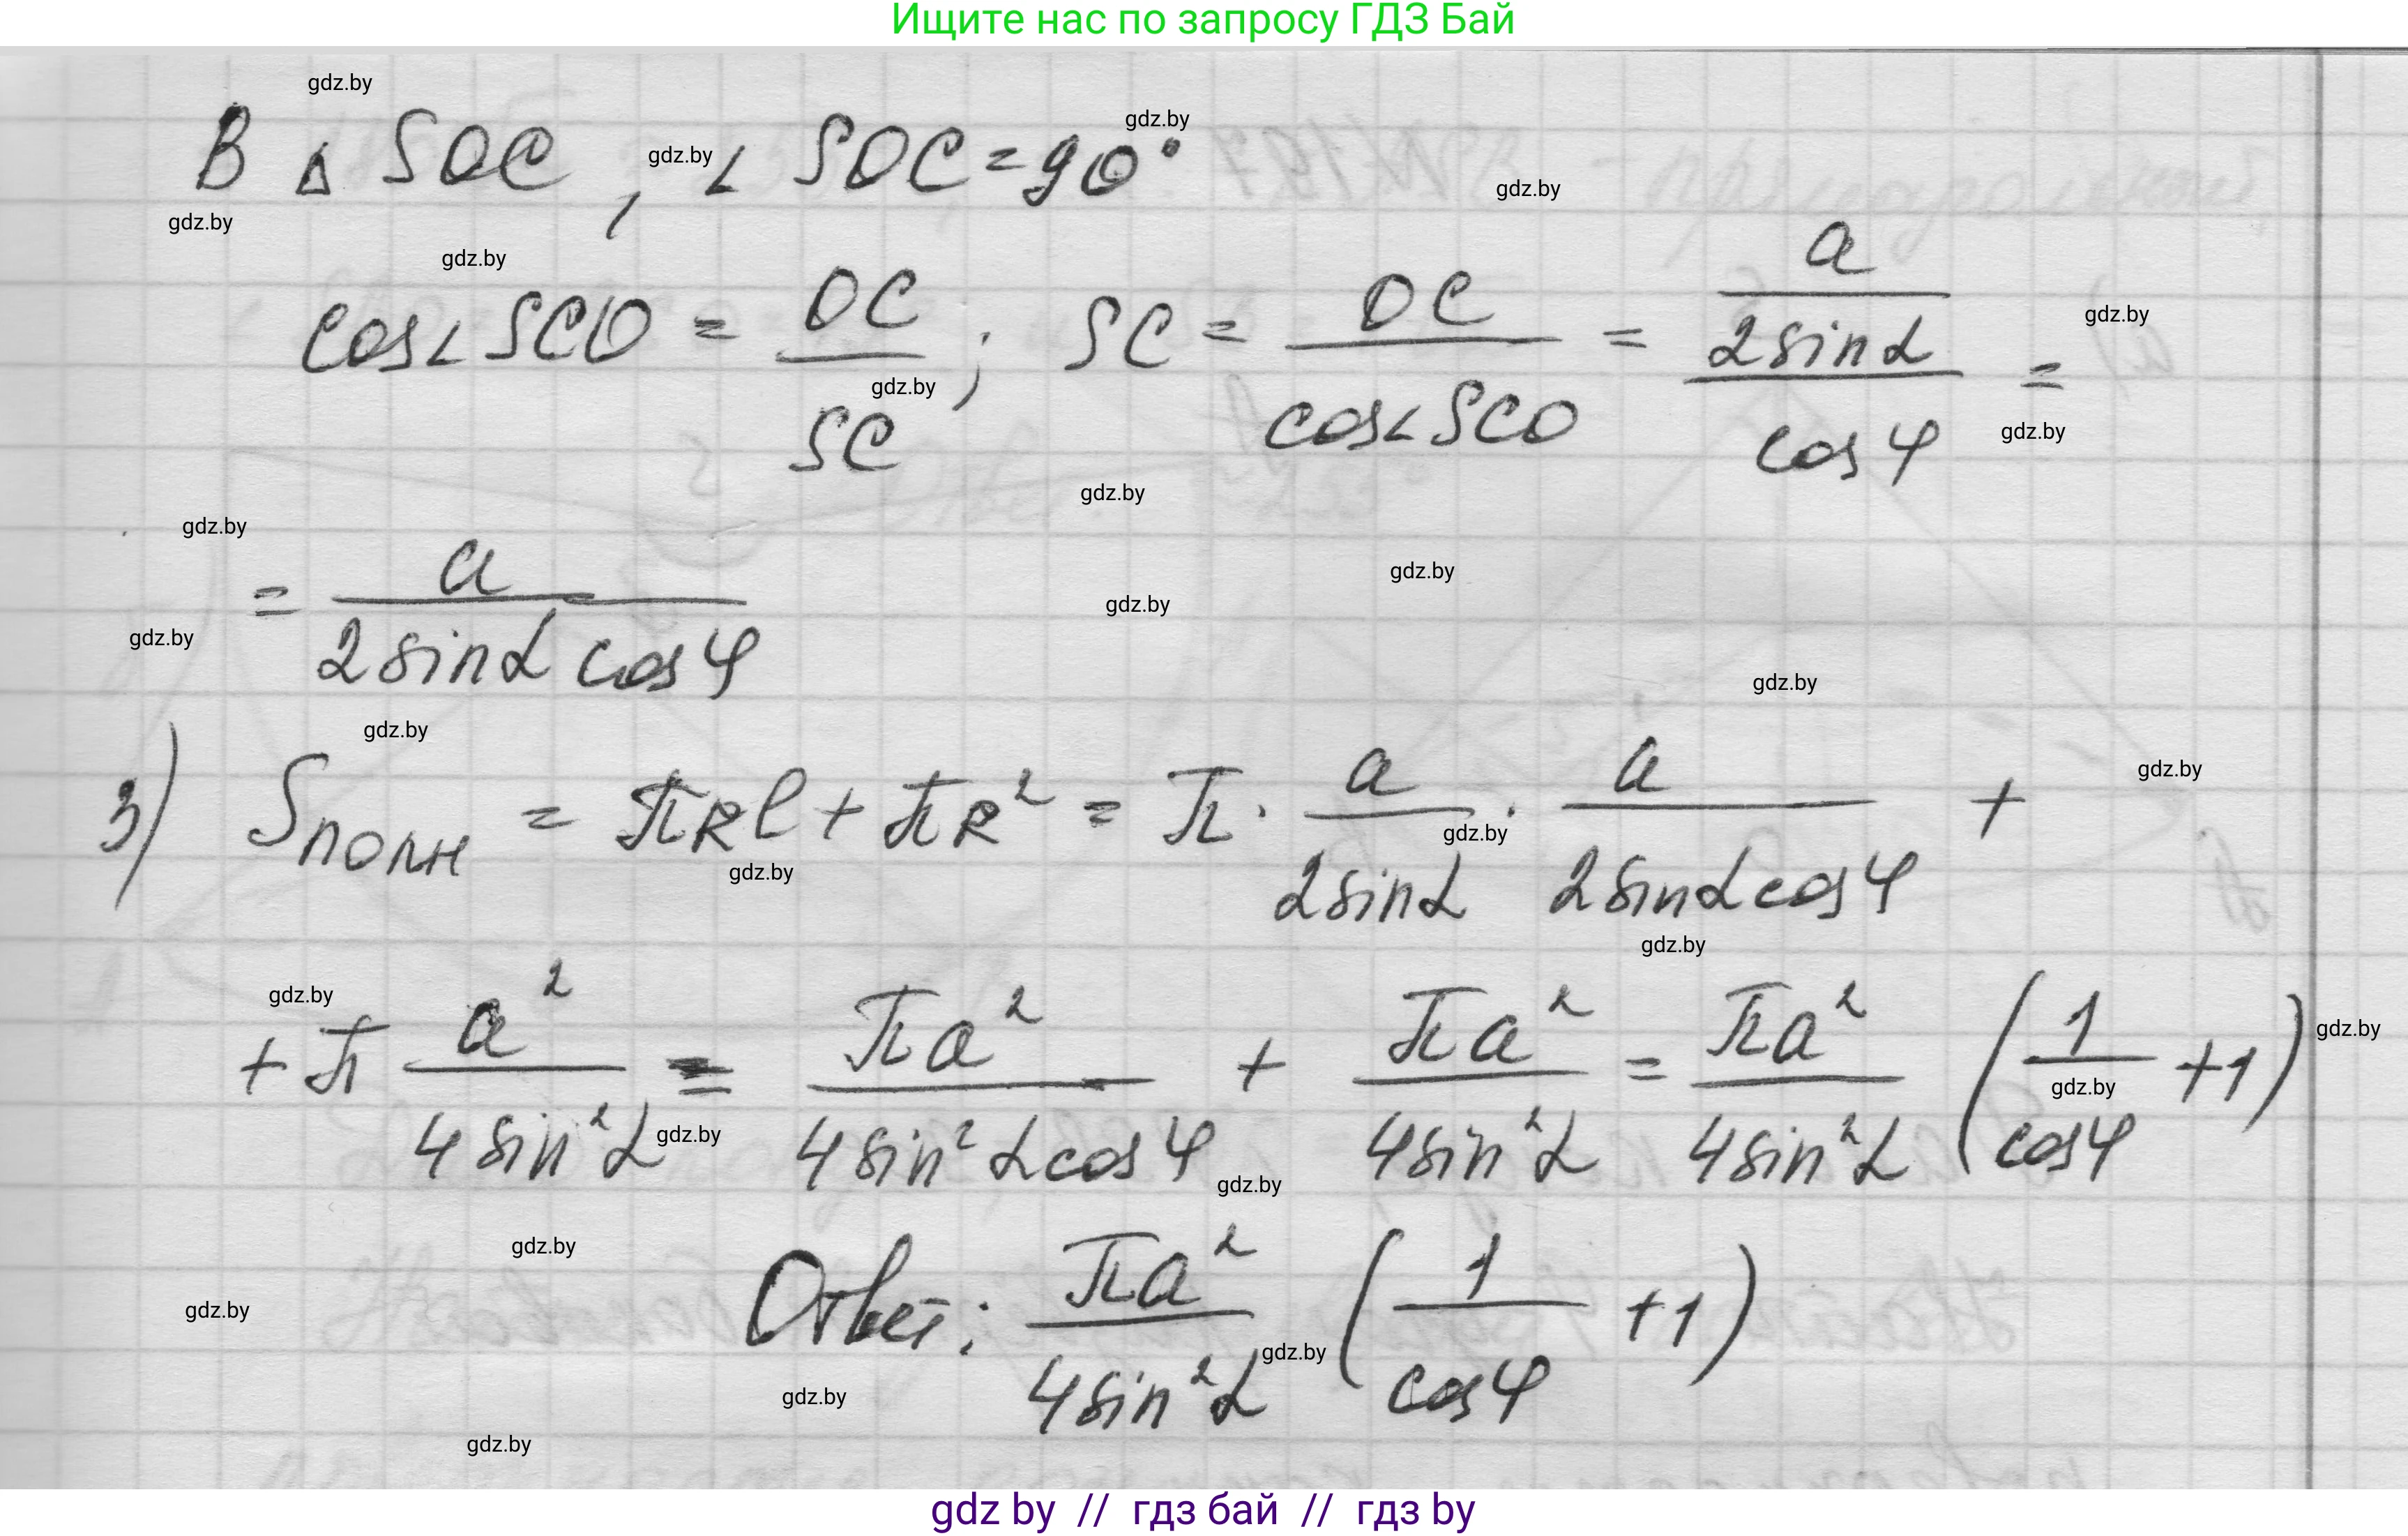 Ищите нас по запросу ГДЗ Бай
В Δ SOC, ∠ SOC = 90°
cos∠SCO = OC/SC; SC = OC/cos∠SCO = (a/2sinα)/cosφ =
= a/(2sinα cosφ)
3) Sполн = πRl + πR² = π · a/(2sinα) · a/(2sinα cosφ) +
+ π a²/(4sin²α) = πa²/(4sin²α cosφ) + πa²/(4sin²α) = πa²/(4sin²α) (1/cosφ + 1)
Ответ: πa²/(4sin²α) (1/cosφ + 1)
gdz by // гдз бай // гдз by